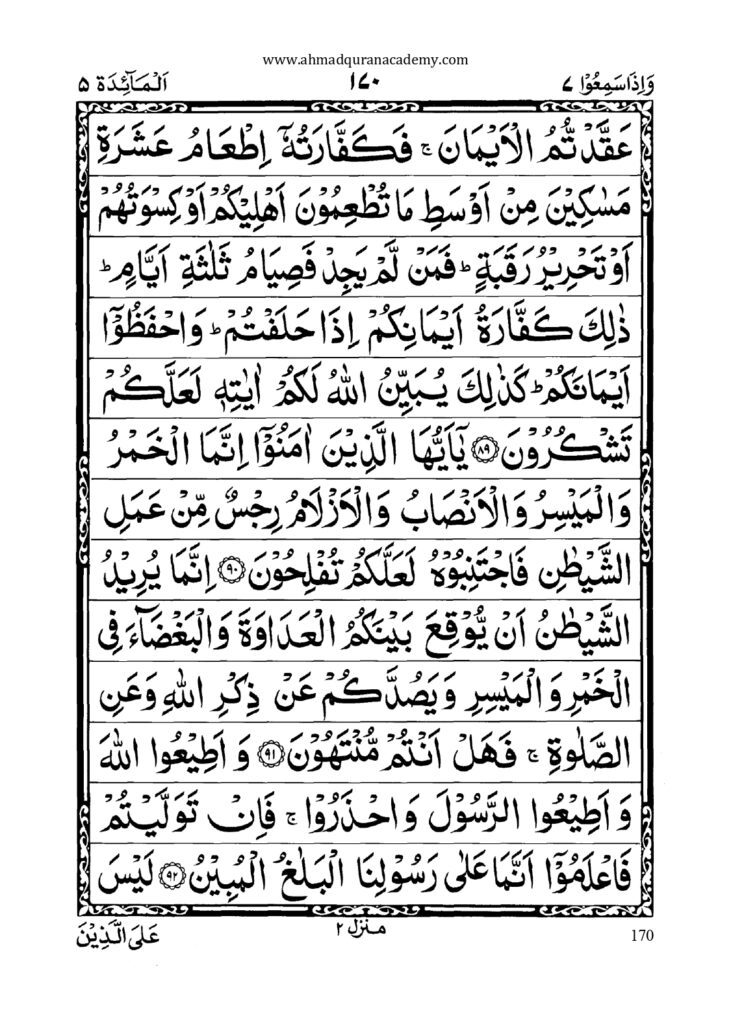 www.ahmadquranacademy.com
وَاِذَا سَمِعُوۡا ۷
۱۷۰
اَلۡمَآئِدَة ۵
عَقَّدْتُّمُ الْاَيْمَانَ ۚ فَكَفَّارَتُهٗٓ اِطْعَامُ عَشَرَةِ
مَسٰكِيْنَ مِنْ اَوْسَطِ مَا تُطْعِمُوْنَ اَهْلِيْكُمْ اَوْ كِسْوَتُهُمْ
اَوْ تَحْرِيْرُ رَقَبَةٍ ؕ فَمَنْ لَّمْ يَجِدْ فَصِيَامُ ثَلٰثَةِ اَيَّامٍ ؕ
ذٰلِكَ كَفَّارَةُ اَيْمَانِكُمْ اِذَا حَلَفْتُمْ ؕ وَاحْفَظُوْٓا
اَيْمَانَكُمْ ؕ كَذٰلِكَ يُبَيِّنُ اللّٰهُ لَكُمْ اٰيٰتِهٖ لَعَلَّكُمْ
تَشْكُرُوْنَ ۸۹ يٰٓاَيُّهَا الَّذِيْنَ اٰمَنُوْٓا اِنَّمَا الْخَمْرُ
وَالْمَيْسِرُ وَالْاَنْصَابُ وَالْاَزْلَامُ رِجْسٌ مِّنْ عَمَلِ
الشَّيْطٰنِ فَاجْتَنِبُوْهُ لَعَلَّكُمْ تُفْلِحُوْنَ ۹۰ اِنَّمَا يُرِيْدُ
الشَّيْطٰنُ اَنْ يُّوْقِعَ بَيْنَكُمُ الْعَدَاوَةَ وَالْبَغْضَآءَ فِى
الْخَمْرِ وَالْمَيْسِرِ وَيَصُدَّكُمْ عَنْ ذِكْرِ اللّٰهِ وَعَنِ
الصَّلٰوةِ ۚ فَهَلْ اَنْتُمْ مُّنْتَهُوْنَ ۹۱ وَاَطِيْعُوا اللّٰهَ
وَاَطِيْعُوا الرَّسُوْلَ وَاحْذَرُوْا ۚ فَاِنْ تَوَلَّيْتُمْ
فَاعْلَمُوْٓا اَنَّمَا عَلٰى رَسُوْلِنَا الْبَلٰغُ الْمُبِيْنُ ۹۲ لَيْسَ
170
منزل ۲
عَلَى الَّذِيْنَ